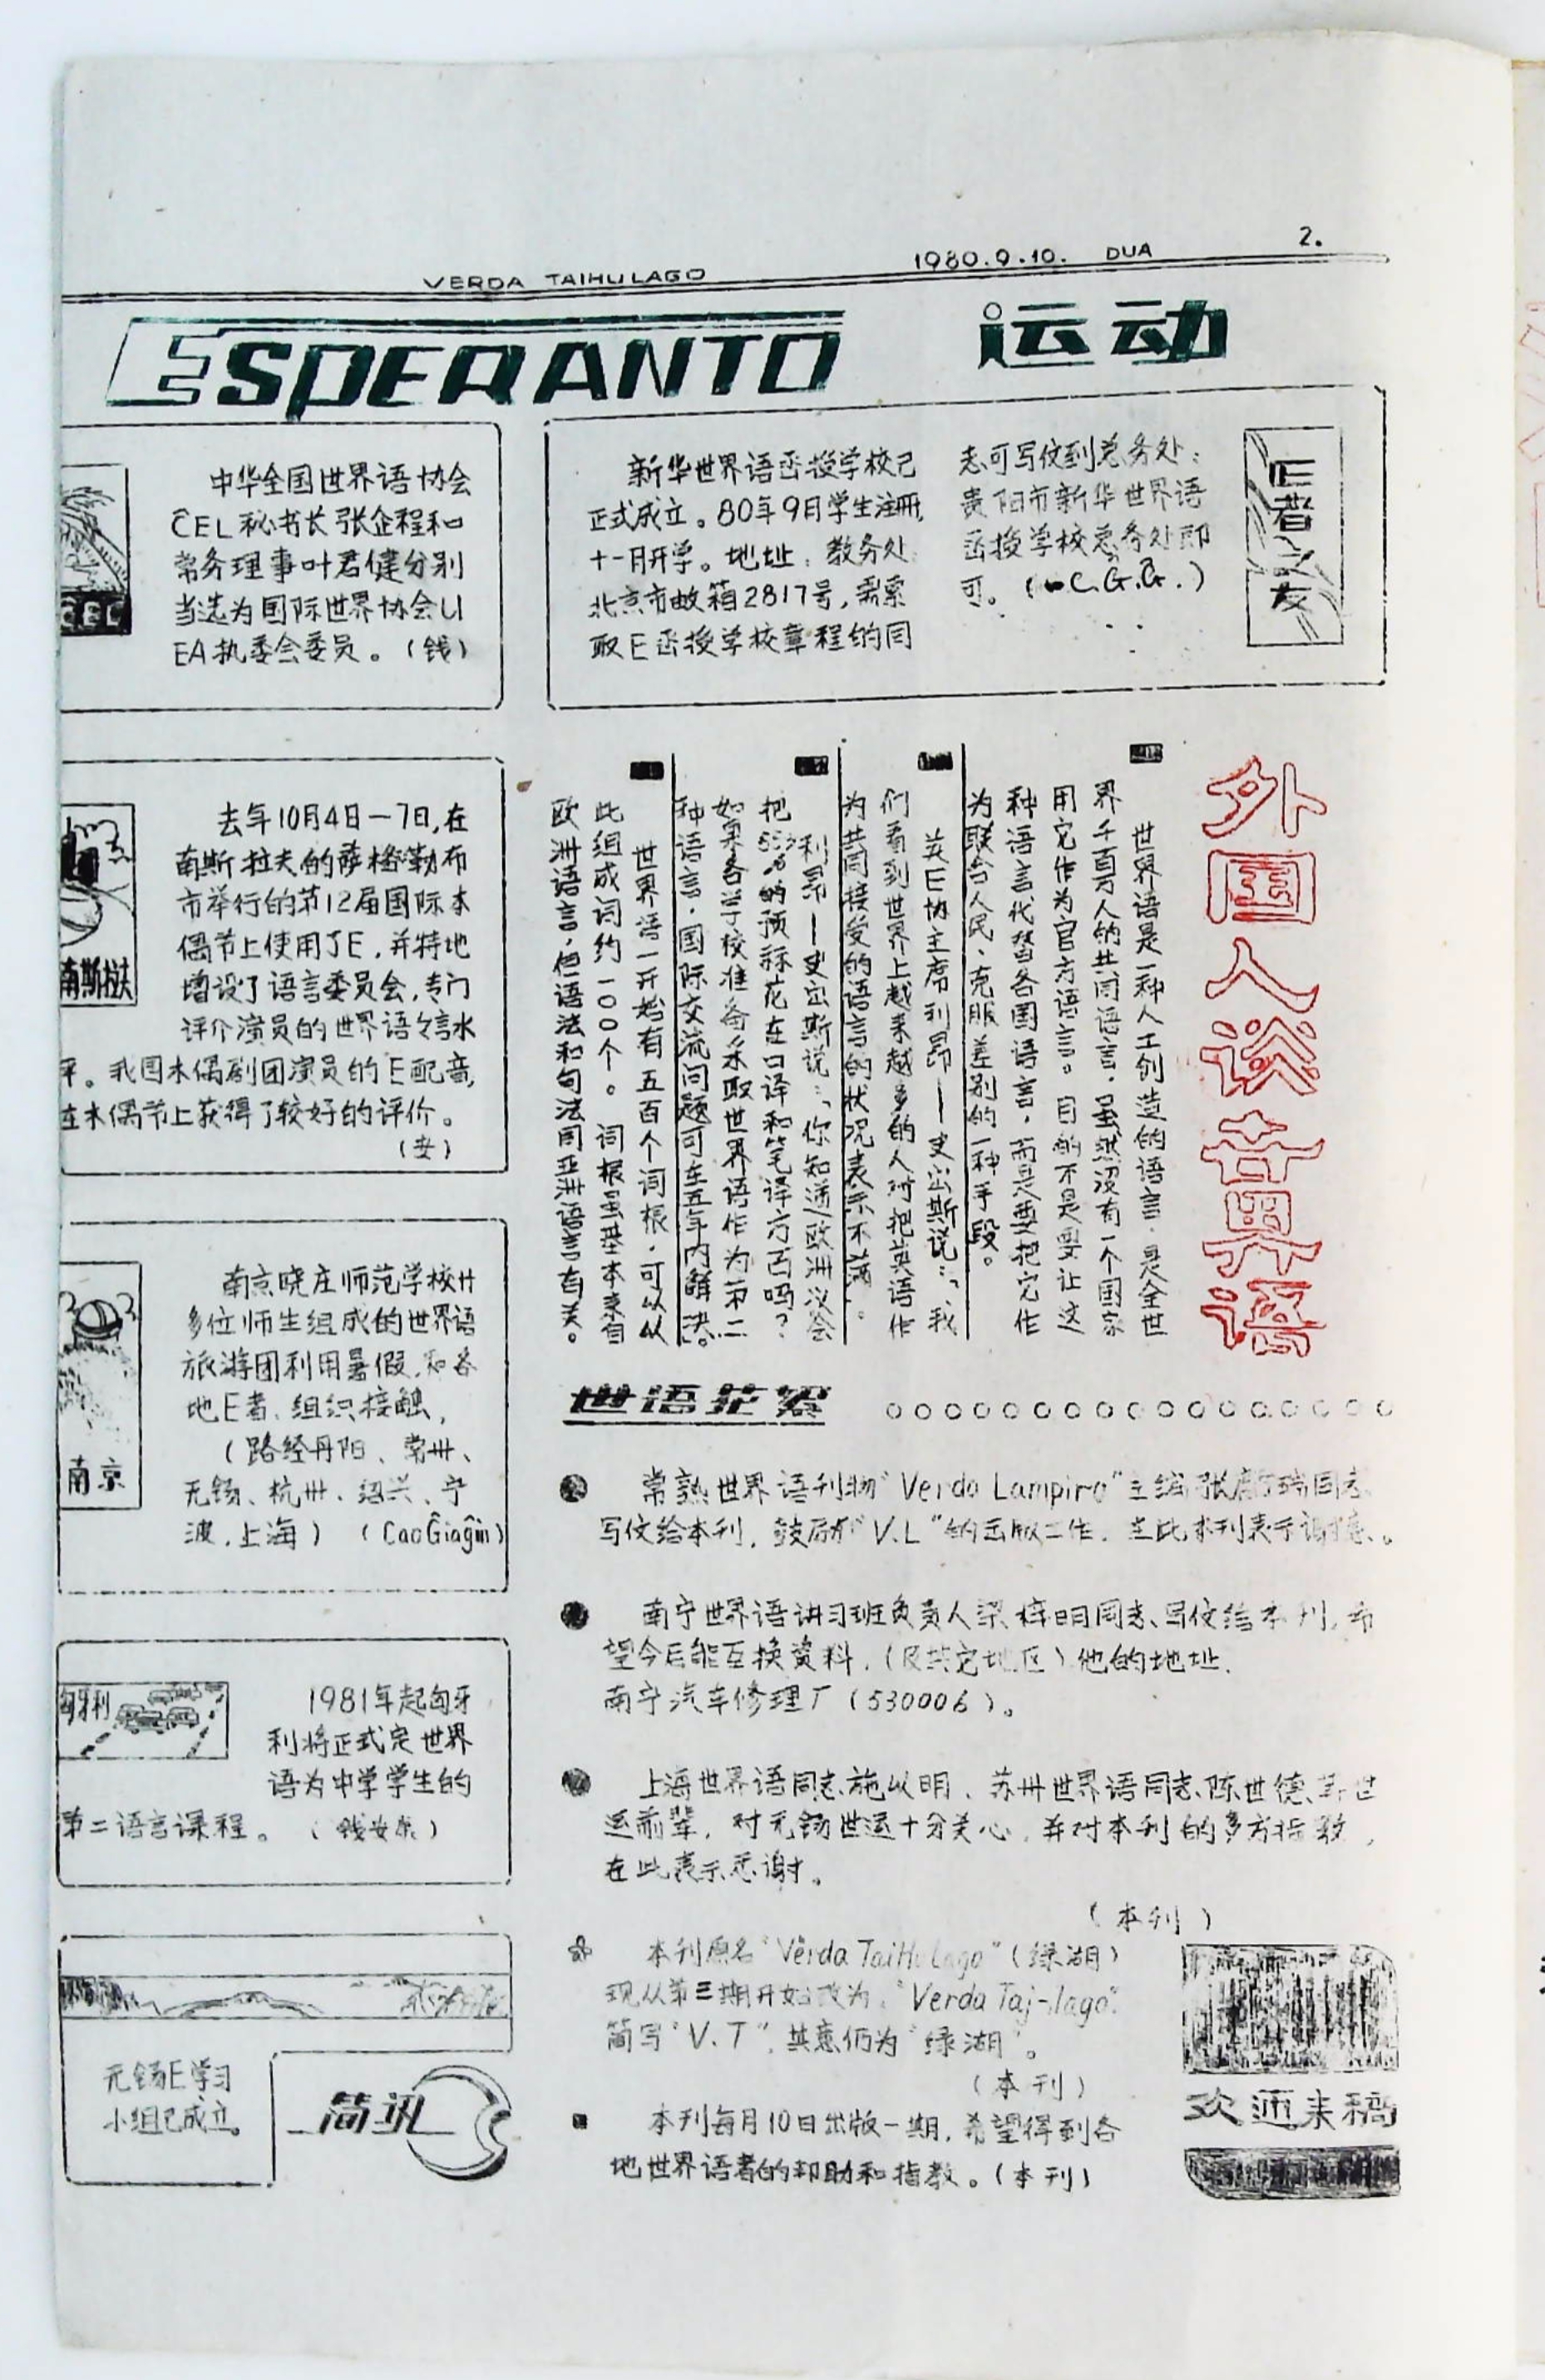 VERDA TAIHULAGO
1980.9.10. DUA
2.
ESPERANTO 运动
CEL
中华全国世界语协会
ĈEL秘书长张企程和
常务理事叶君健分别
当选为国际世界协会U
EA执委会委员。(钱)
新华世界语函授学校已
正式成立。80年9月学生注册,
十一月开学。地址:教务处
北京市邮箱2817号,需索
取E函授学校章程的同
志可写信到总务处:
贵阳市新华世界语
函授学校总务处即
可。(C.G.Ĝ.)
E者之友
南斯拉夫
去年10月4日—7日,在
南斯拉夫的萨格勒布
市举行的第12届国际木
偶节上使用了E,并特地
增设了语言委员会,专门
评介演员的世界语语言水
平。我国木偶剧团演员的E配音,
在木偶节上获得了较好的评价。
(安)
南京
南京晓庄师范学校廿
多位师生组成的世界语
旅游团利用暑假,和各
地E者、组织接触,
(路经丹阳、常州、
无锡、杭州、绍兴、宁
波,上海) (CaoĜiaĝin)
匈牙利
1981年起匈牙
利将正式定世界
语为中学学生的
第二语言课程。(钱安)
无锡E学习
小组已成立。
简讯
外国人谈世界语
世界语是一种人工创造的语言,是全世
界千百万人的共同语言,虽然没有一个国家
用它作为官方语言。目的不是要让这
种语言代替各国语言,而是要把它作
为联合人民、克服差别的一种手段。
英E协主席利昂—史出斯说:“我
们看到世界上越来越多的人对把英语作
为共同接受的语言的状况表示不满”。
利昂—史出斯说:“你知道欧洲议会
把55%的预算花在口译和笔译方面吗?
如果各学校准备采取世界语作为第二
种语言,国际交流问题可在五年内解决。
世界语一开始有五百个词根,可以从
此组成词约一〇〇个。词根虽基本来自
欧洲语言,但语法和句法同亚洲语言有关。
世语花絮
常熟世界语刊物“Verda Lampiro”主编张瑞同志
写信给本刊,鼓励“V.L”的出版工作,在此本刊表示谢意。
南宁世界语讲习班负责人梁梓明同志、写信给本刊,希
望今后能互换资料,(及其它地区)他的地址,
南宁汽车修理厂(530006)。
上海世界语同志施以明、苏州世界语同志陈世德、等世
运前辈,对无锡世运十分关心,并对本刊的多方指教,
在此表示感谢。
(本刊)
本刊原名“Verda TaiHuLago”(绿湖)
现从第三期开始改为,“Verda Taj-lago”.
简写“V.T”,其意仍为“绿湖”。
(本刊)
本刊每月10日出版一期,希望得到各
地世界语者的帮助和指教。(本刊)
欢迎来稿